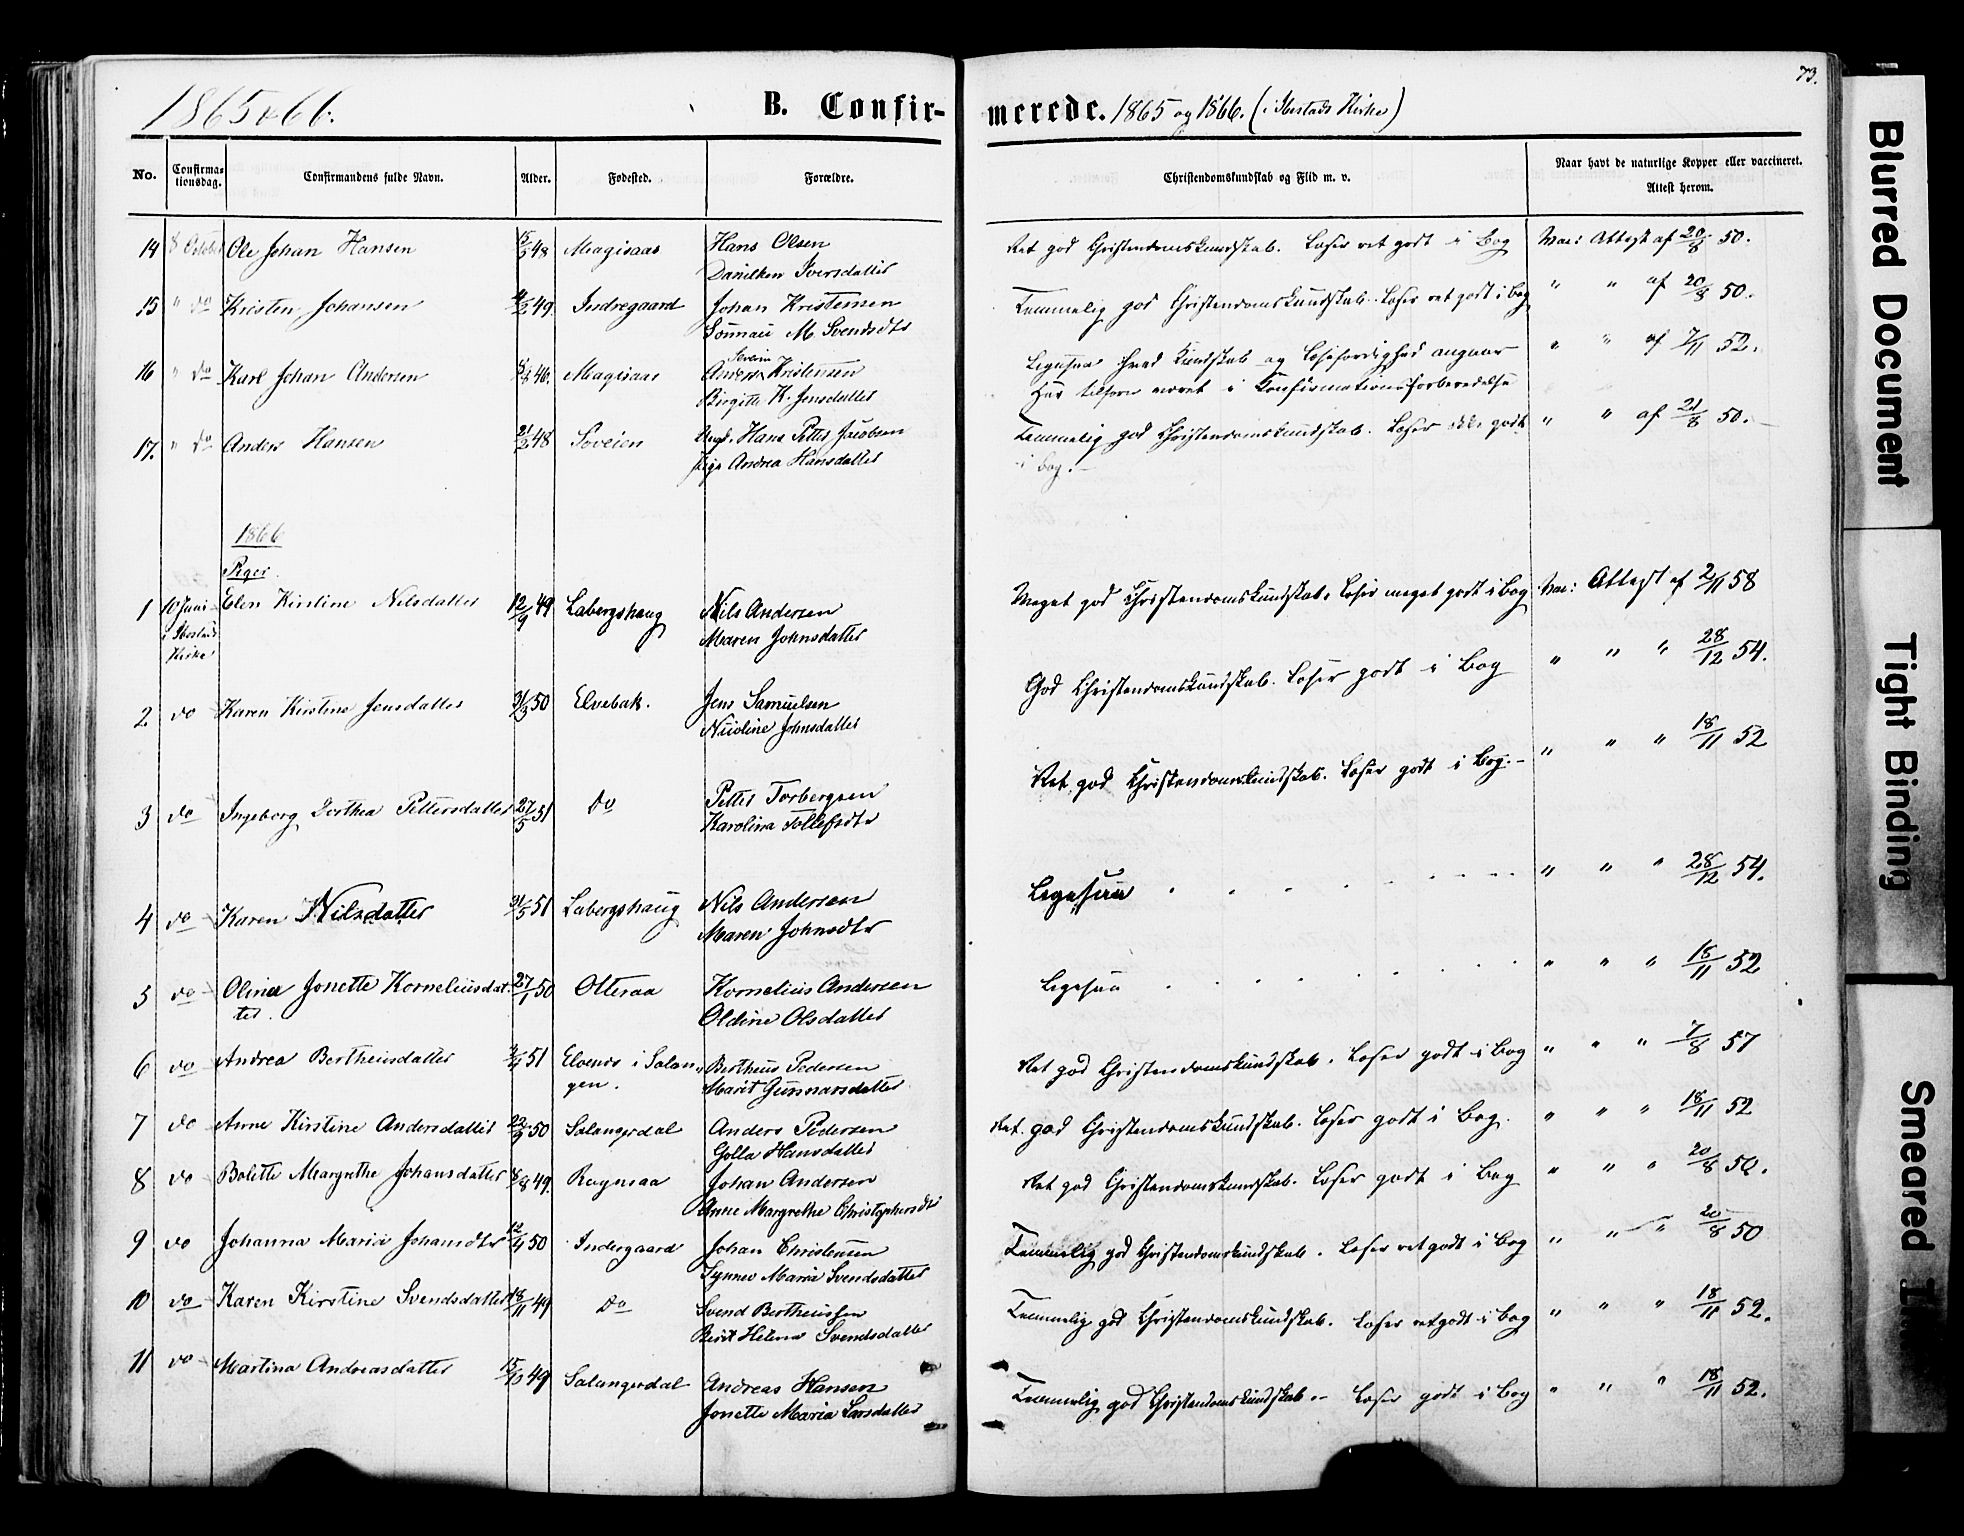 73.
1865 & 66. B. Confir-merede. 1865 og 1866. (i Ibestads Kirke)
No. Confirma-tionsdag. Confirmandens fulde Navn. Alder. Fødested. Forældre. Christendomskundskab og Flid m. v. Naar havt de naturlige Kopper eller vaccineret. Attest herom.
14 8 October Ole Johan Hansen 48 Magisaas Hans Olsen Ret god Christendomskundskab. Læser ret godt i Bog Vac: Attest af 20/8 50.
Daniken Iversdatter
15 " do Kristen Johansen 49. Indregaard Johan Kristensen Temmelig god Christendomskundskab. Læser ret godt i Bog " " af 20/8 50.
M. Svendsdtr
16 " do Karl Johan Andersen 46. Magisaas Anders Kristensen Ligesaa hvad Kundskab og Læsefærdighed angaar " " af 7/11 52.
Severin
Birgitte K. Jensdatter Har tilforn været i Confirmationsforberedelse
17. " do Anders Hansen 48 Soveien Ungk. Hans Petter Jacobsen Temmelig god Christendomskundskab. Læser ikke godt " " af 21/8 50.
Pige Andrea Hansdatter i Bog.
1866
Piger.
1 10 Juni Elen Kirstine Nilsdatter 12/9 49 Labergshaug Nils Andersen Meget god Christendomskundskab. Læser meget godt i Bog Vac: Attest af 2/11 58
i Ibestad Kirke Maren Johnsdatter
2 do Karen Kirstine Jensdatter 31/3 50 Elvebak. Jens Samuelsen God Christendomskundskab. Læser godt i Bog " " " 28/12 54.
Nicoline Johnsdatter
3 do Ingeborg Dorthea Pettersdatter 27/5 51 do Petter Torbergsen Ret god Christendomskundskab. Læser godt i Bog. " " " 18/11 52
Karolina Tollefsdtr
4 do Karen Nilsdatter 31/5 51 Labergshaug Nils Andersen Ligesaa " " " 28/12 54.
Maren Johnsdtr
5 do Olina Jonette Korneliusdat- 27/1 50 Otteraa Kornelius Andersen Ligesaa " " " 18/11 52
ter. Oldine Olsdatter
6 do Andrea Bertheusdatter 51 Elvenes i Salan- Bertheus Pedersen Ret god Christendomskundskab. Læser godt i Bog " " " 7/8 57
gen. Marit Gunnarsdatter
7 do Anne Kirstine Andersdatter 50 Salangerdal Anders Pedersen Ret god Christendomskundskab. Læser godt i Bog. " " " 18/11 52
Golla Hansdatter
8 do Bolette Margrethe Johansdatter 49. Rognsaa Johan Andersen Ret god Christendomskundskab. Læser godt i Bog " " " 20/8 50.
Anne Margrethe Christophersdtr
9 do Johanna Maria Johansdtr 50 Indergaard Johan Christensen Temmelig god Christendomskundskab. Læser ret godt i Bog " " " 20/8 50
Synnev Maria Svendsdatter
10 do Karen Kirstine Svendsdatter 18/11 49 do Svend Bertheussen Temmelig god Christendomskundskab. Læser ret godt i Bog " " " 18/11 52.
Berit Helena Svendsdatter
11 do Martina Andreasdatter 15/10 49 Salangerdal Andreas Hansen Temmelig god Christendomskundskab. Læser godt i Bog " " " 18/11 52.
Jonette Maria Larsdatter
Blurred Document
Tight Binding
Smeared